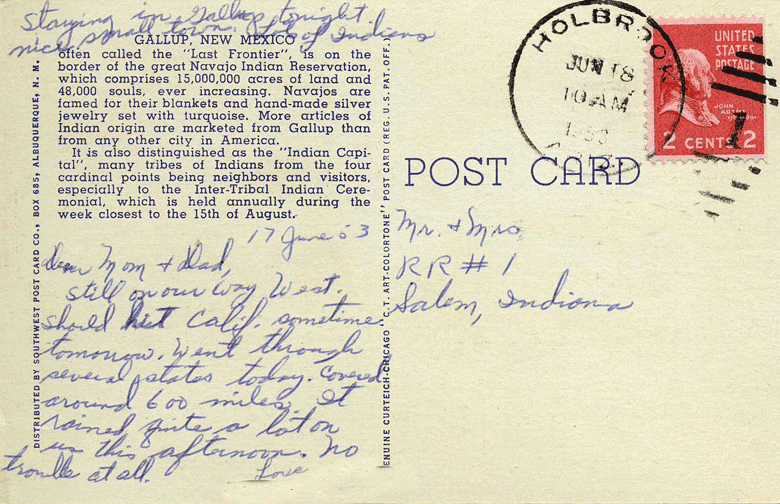 Staying in Gallup tonight
nice small town. Lot of Indians
GALLUP, NEW MEXICO
often called the "Last Frontier", is on the
border of the great Navajo Indian Reservation,
which comprises 15,000,000 acres of land and
48,000 souls, ever increasing. Navajos are
famed for their blankets and hand-made silver
jewelry set with turquoise. More articles of
Indian origin are marketed from Gallup than
from any other city in America.
It is also distinguished as the "Indian Capi-
tal", many tribes of Indians from the four
cardinal points being neighbors and visitors,
especially to the Inter-Tribal Indian Cere-
monial, which is held annually during the
week closest to the 15th of August.
17 June 53
Dear Mom & Dad,
Still on our way West.
Should hit Calif. sometime
tomorrow. Went through
several states today. Covered
around 600 miles. It
rained quite a lot on
us this afternoon. No
trouble at all.
Love
DISTRIBUTED BY SOUTHWEST POST CARD CO., BOX 685, ALBUQUERQUE, N. M.
ENUINE CURTEICH-CHICAGO "C.T. ART-COLORTONE" POST CARD (REG. U.S. PAT. OFF.
POST CARD
Mr. & Mrs
RR # 1
Salem, Indiana
HOLBROOK
JUN 18
10 AM
UNITED
STATES
POSTAGE
JOHN
ADAMS
2 CENTS 2